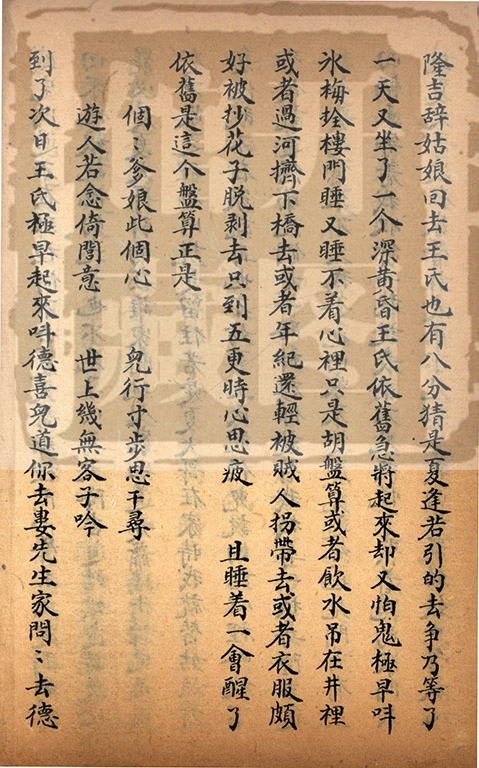 隆吉辞姑娘回去王氏也有八分猜是夏逢若引的去争乃等了
一天又坐了一个深黄昏王氏依舊急將起來却又怕鬼極早呌
氷梅拴樓門睡又睡不着心裡只是胡盤算或者飲水吊在井裡
或者過河擠下橋去或者年紀還輕被賊人拐帶去或者衣服頗
好被抄花子脱剥去只到五更時心思疲 且睡着一會醒了
依舊是這个盤算正是
個〻爹娘此個心 兒行寸步思千尋
遊人若念倚閭意 世上幾無客子吟
到了次日王氏極早起來呌德喜兒道你去婁先生家問〻去德